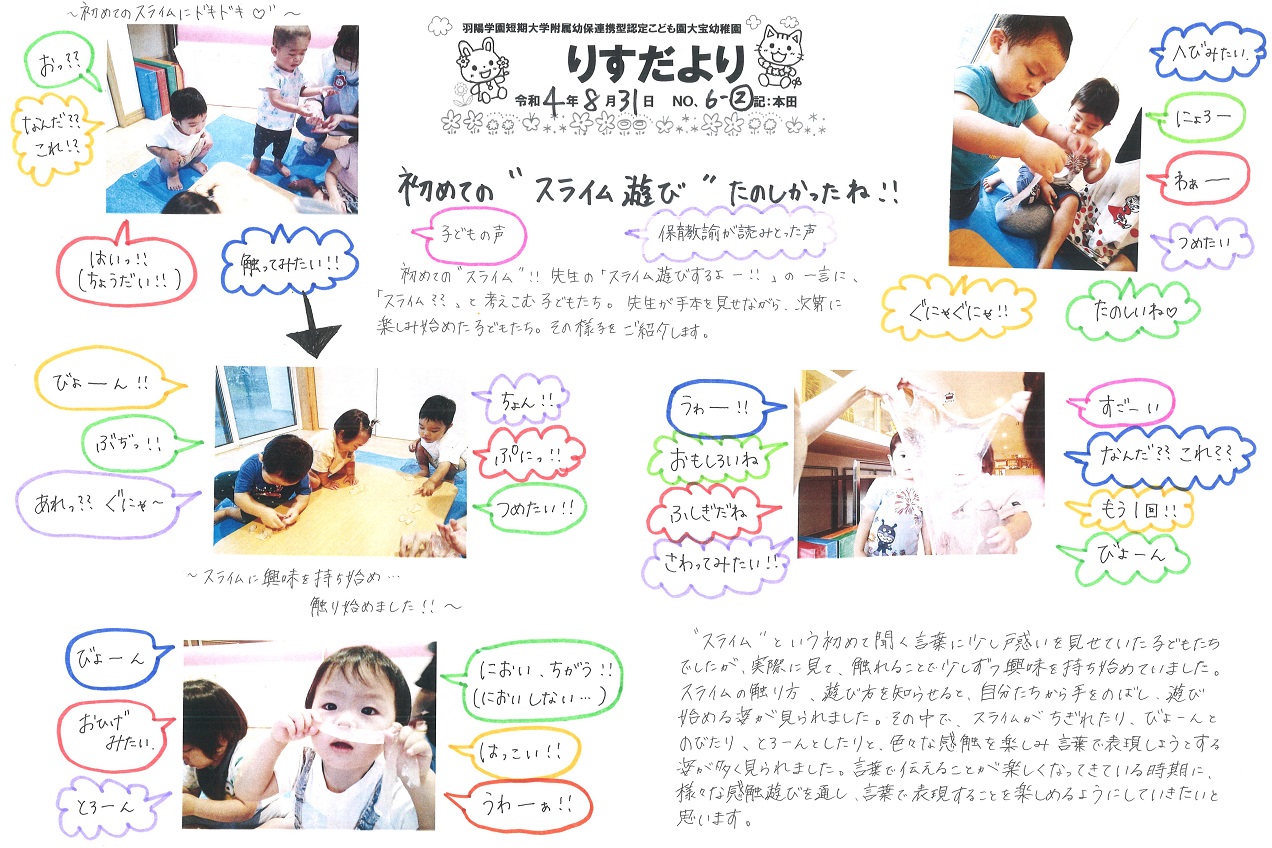 ～初めてのスライムにドキドキ♡〃～
おっ??
なんだ??
これ!?
はいっ!!
(ちょうだい!!)
触ってみたい!!
羽陽学園短期大学附属幼保連携型認定こども園大宝幼稚園
りすだより
令和4年8月31日 NO、6-② 記:本田
初めての〝スライム遊び〟たのしかったね!!
子どもの声
保育教諭が読みとった声
初めての〝スライム〟!! 先生の「スライム遊びするよー!!」の一言に、
「スライム??」と考えこむ子どもたち。先生が手本を見せながら、次第に
楽しみ始めた子どもたち。その様子をご紹介します。
へびみたい.
にょろー
わぁー
つめたい
ぐにゃぐにゃ!!
たのしいね♡
びょーん!!
ぶぢっ!!
あれっ?? ぐにゃ～
ちょん!!
ぷにっ!!
つめたい!!
～スライムに興味を持ち始め…
触り始めました!!～
うわー!!
おもしろいね
ふしぎだね
さわってみたい!!
すごーい
なんだ?? これ??
もう1回!!
びょーん
びょーん
おひげ
みたい.
とろーん
におい、ちがう!!
(においしない…)
はっこい!!
うわーぁ!!
〝スライム〟という初めて聞く言葉に少し戸惑いを見せていた子どもたち
でしたが、実際に見て、触れることで少しずつ興味を持ち始めていました。
スライムの触り方、遊び方を知らせると、自分たちから手をのばし、遊び
始める姿が見られました。その中で、スライムがちぎれたり、びょーんと
のびたり、とろーんとしたりと、色々な感触を楽しみ言葉で表現しようとする
姿が多く見られました。言葉で伝えることが楽しくなってきている時期に、
様々な感触遊びを通し、言葉で表現することを楽しめるようにしていきたいと
思います。